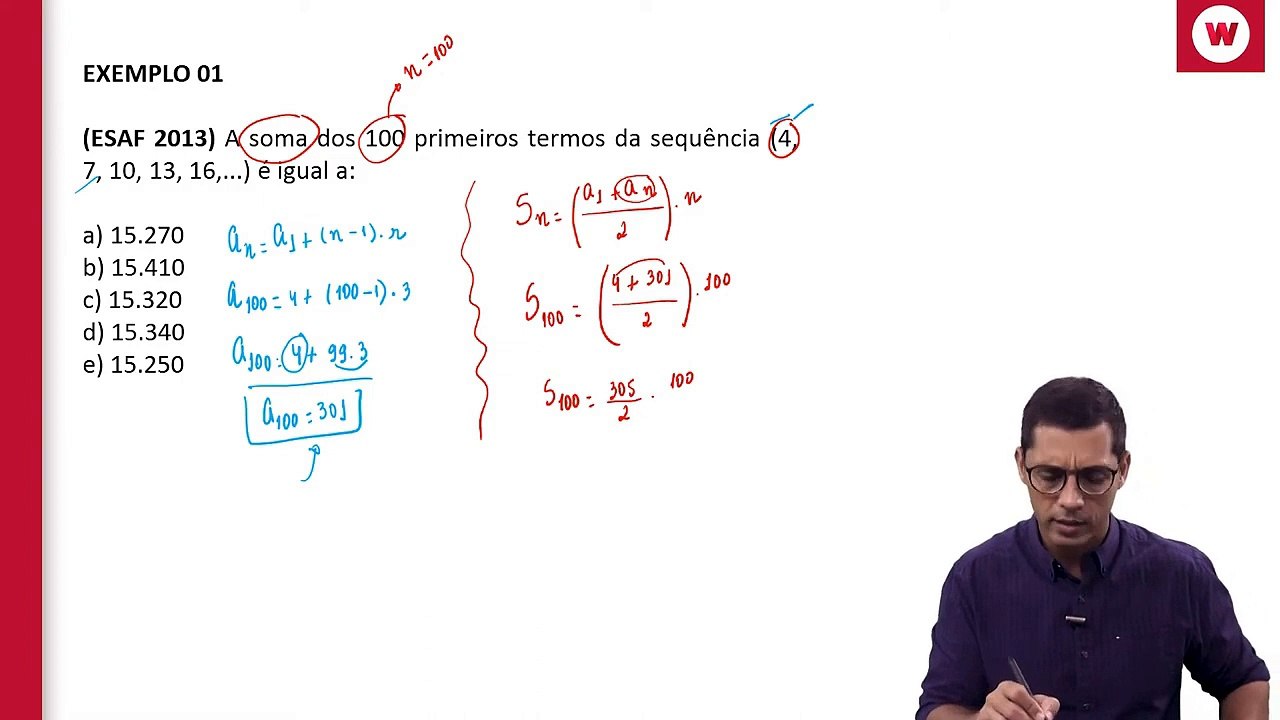 W
EXEMPLO 01
n = 100
(ESAF 2013) A soma dos 100 primeiros termos da sequência (4,
7, 10, 13, 16,...) é igual a:
a) 15.270
b) 15.410
c) 15.320
d) 15.340
e) 15.250
an = a1 + (n-1).r
a100 = 4 + (100-1).3
a100 = 4 + 99.3
a100 = 301
Sn = (a1 + an / 2) . n
S100 = (4 + 301 / 2) . 100
S100 = 305 / 2 . 100